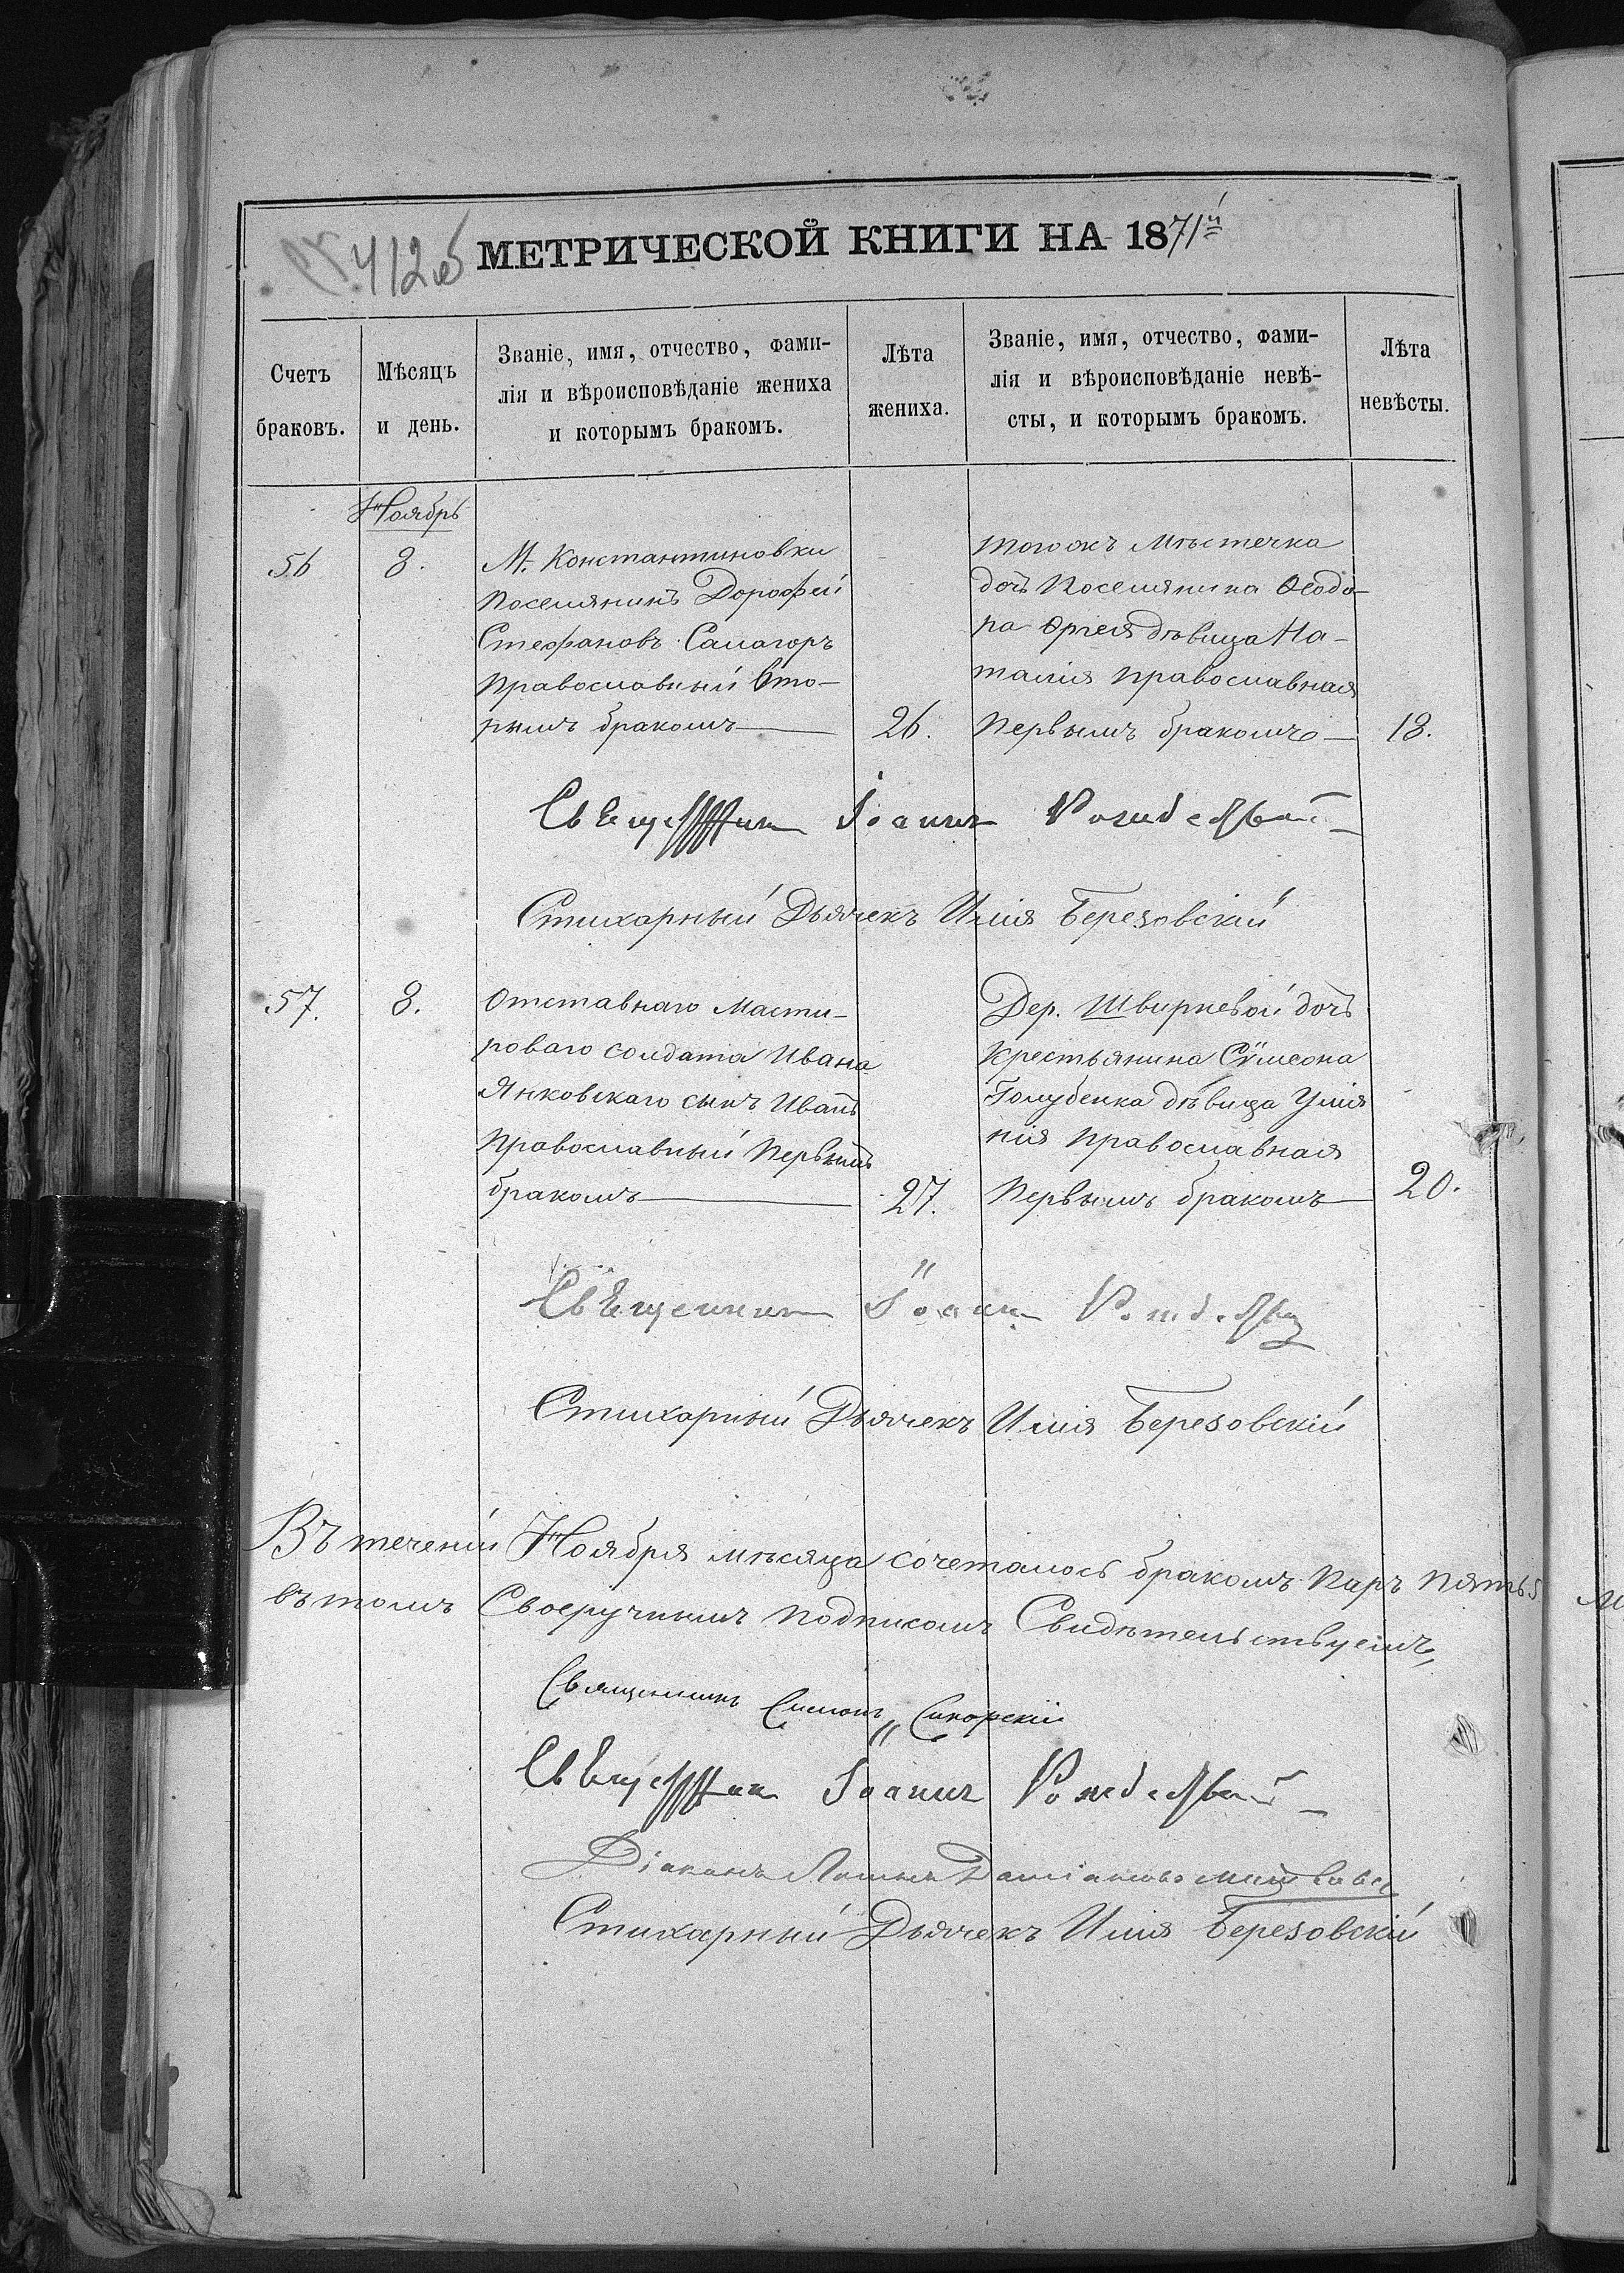 412об
МЕТРИЧЕСКОЙ КНИГИ НА 1871й
Счетъ браковъ.
Мѣсяцъ и день.
Званіе, имя, отчество, фами-
лія и вѣроисповѣданіе жениха
и которымъ бракомъ.
Лѣта жениха.
Званіе, имя, отчество, фами-
лія и вѣроисповѣданіе невѣ-
сты, и которымъ бракомъ.
Лѣта невѣсты.
Ноябрь
56
8.
М. Константиновки
поселянинъ Дорофей
Стефановъ Самагоръ
православный вто-
рымъ бракомъ
26.
тогожъ мѣстечка
дочь поселянина Ѳеодо-
ра дѣвица На-
талія православная
первымъ бракомъ
18.
Священникъ Іоаннъ
Стихарный Дьячекъ Илія Березовскій
57.
8.
Отставнаго
роваго солдата Ивана
Янковскаго сынъ Иванъ
православный первымъ
бракомъ
27.
Дер. Швырневой дочь
крестьянина Сѵмеона
Голубенка дѣвица Улія
нія православная
первымъ бракомъ
20.
Священникъ Іоаннъ
Стихарный Дьячекъ Илія Березовскій
Въ теченіи Ноября мѣсяца сочеталось бракомъ паръ пять 5
въ томъ Своеручнымъ подписомъ Свидѣтельствуемъ,
Священникъ Симонъ Сикорскій
Священникъ Іоаннъ
Діаконъ
Стихарный Дьячекъ Илія Березовскій